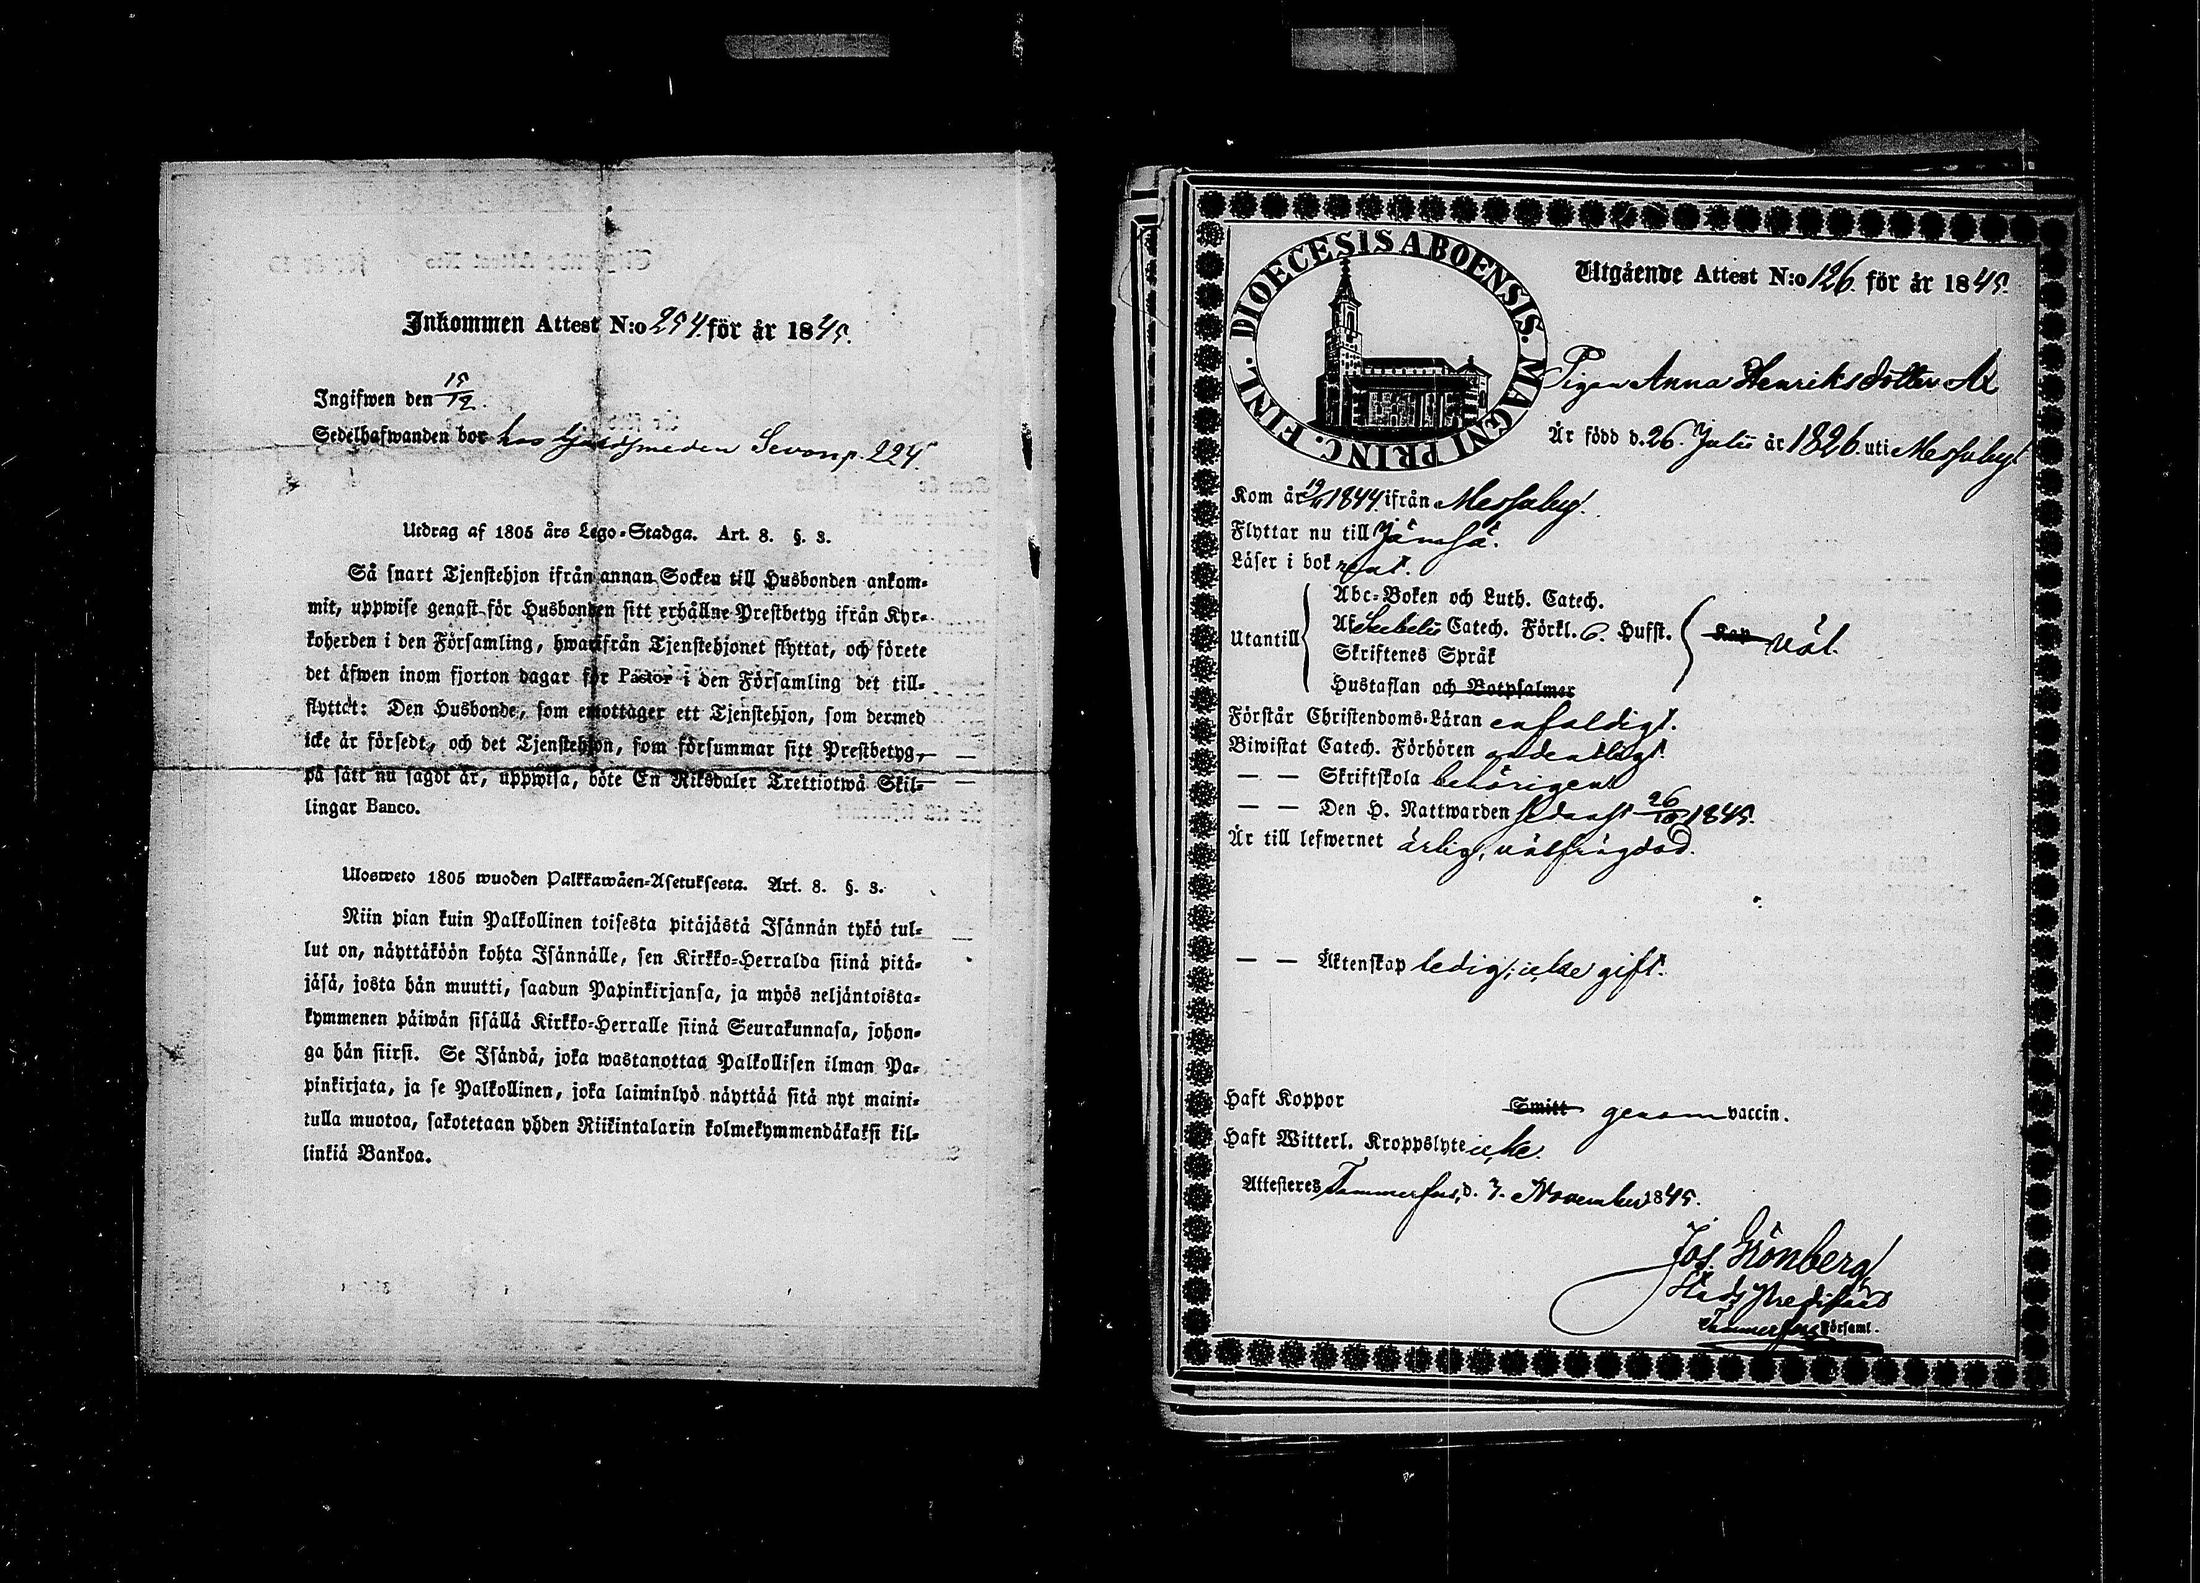 Inkommen Attest N:o 254 för år 1845.
Ingifwen den 15/12.
Sedelhafwanden bor hos Guldsmeden p. 224.
Utdrag af 1805 års Lego-Stadga. Art. 8. §. 3.
Så snart Tjenstehjon ifrån annan Socken till Husbonden ankom-
mit, uppwise genast för Husbonden sitt erhållne Prestbetyg ifrån Kyr-
koherden i den Församling, hwarifrån Tjenstehjonet flyttat, och förete
det äfwen inom fjorton dagar för Pastor i den Församling det till-
flyttat: Den Husbonde, som emottager ett Tjenstehjon, som dermed
icke är försedt, och det Tjenstehjon, som försummar sitt Prestbetyg,
på sätt nu sagdt är, uppwisa, böte En Riksdaler Trettiotwå Skil-
lingar Banco.
Ulosweto 1805 wuoden Palkkawäen-Asetuksesta. Art. 8. §. 3.
Niin pian kuin Palkollinen toisesta pitäjästä Isännän tykö tul-
lut on, näyttäköön kohta Isännälle, sen Kirkko-Herralda siinä pitä-
jäsä, josta hän muutti, saadun Papinkirjansa, ja myös neljäntoista-
kymmenen päiwän sisällä Kirkko-Herralle siinä Seurakunnasa, johon-
ga hän siirsi. Se Isändä, joka wastanottaa Palkollisen ilman Pa-
pinkirjata, ja se Palkollinen, joka laiminlyö näyttää sitä nyt maini-
tulla muotoa, sakotetaan yhden Riikintalarin kolmekymmendäkaksi kil-
linkiä Bankoa.
DIOECESIS ABOENSIS. MAGNI PRINC. FINL.
Utgående Attest N:o 126. för år 1845.
Pigan Anna Henriksdotter
Är född d. 26. Julii år 1826. uti Messuby
Kom år 1844 ifrån Messuby.
Flyttar nu till Jämsä.
Läser i bok rent.
Utantill
Abc-Boken och Luth. Catech.
Af Sebelii Catech. Förkl. 6. Hufst.
Skriftenes Språk
Hustaflan och Botpsalmer
Kan väl.
Förstår Christendoms-Läran enfaldigt.
Biwistat Catech. Förhören ordentligt.
— — Skriftskola behörigen
— — Den H. Nattwarden sednast 26/10 1845.
Är till lefwernet ärlig, välfrägdad.
— — Äktenskap ledig; icke gift.
Haft Koppor Smitt genom vaccin.
Haft Witterl. Kroppslyte icke.
Attesteres Tammerfors, d. 7. November 1845.
Jos. Grönberg
Stads Predikant
Tammerfors Församl.